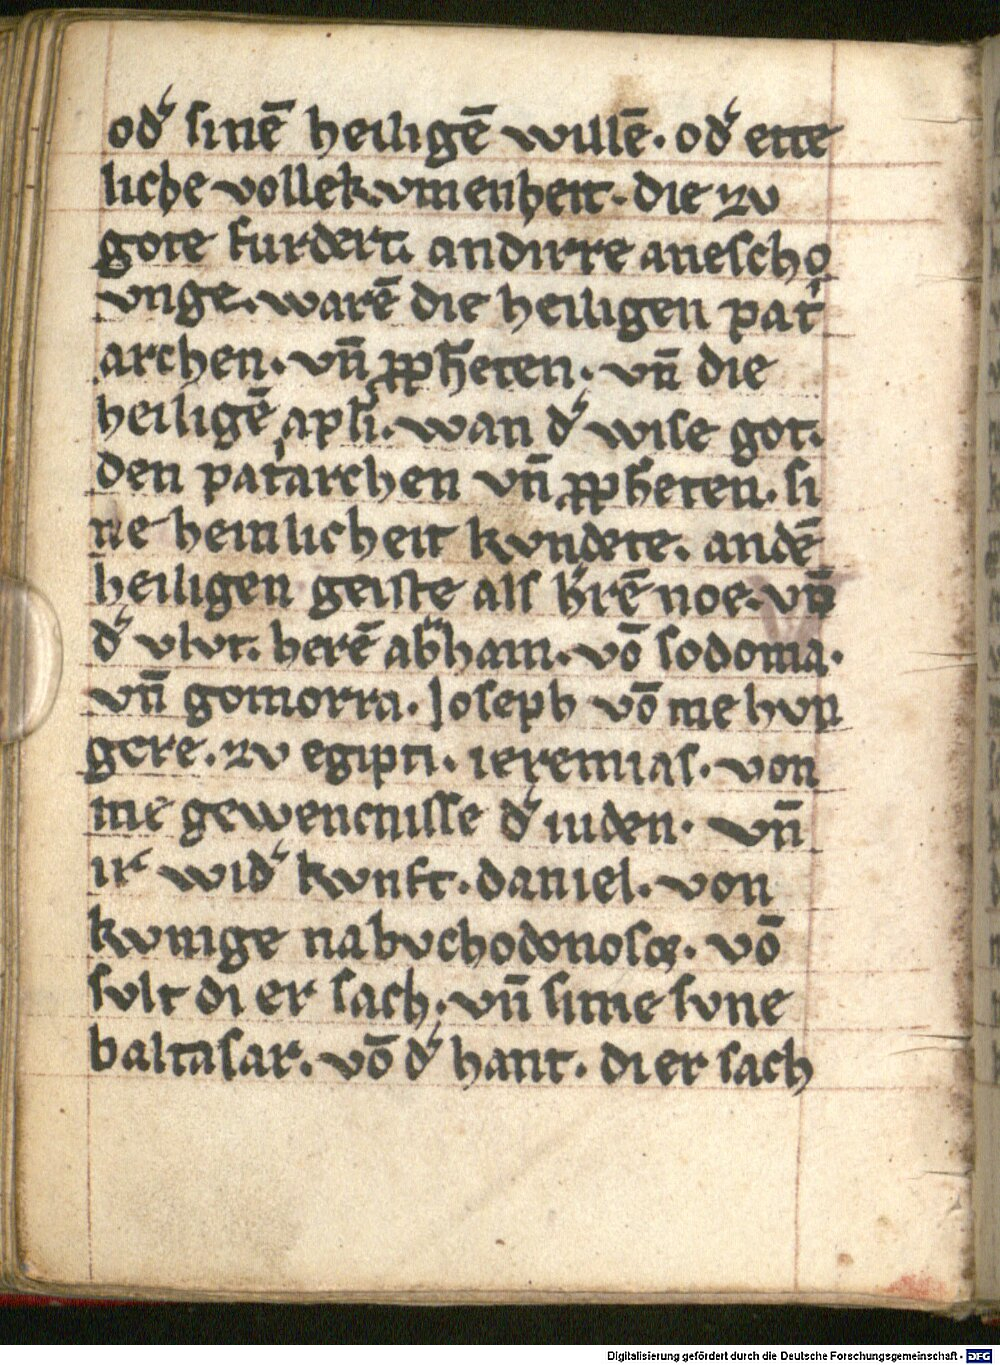 od᷑ sinē heiligē willē. od᷑ ette
liche vollekvmenheit. die zv
gote furdert. andirre anescho
vnge. warē die heiligen pat᷑
archen. vn̄ ꝓph̄eten. vn̄ die
heiligē apl̄i. wan d᷑ wise got.
den pat᷑archen vn̄ ꝓph̄eten. si
ne heimlicheit kvndete. andē
heiligen geiste als h̄rē noe. vn̄
d᷑ vlvt. herē ab̄ham. vō sodoma.
vn̄ gomorra. Joseph vō me hvn
gere. zv egipti. ieremias. von
me gewencnisse d᷑ iuden. vn̄
ir wid᷑ kvnft. daniel. von
kvnige nabvchodonosoꝛ. vō
svlt di er sach. vn̄ sime svne
baltasar. vō d᷑ hant. di er sach
Digitalisierung gefördert durch die Deutsche Forschungsgemeinschaft - DFG